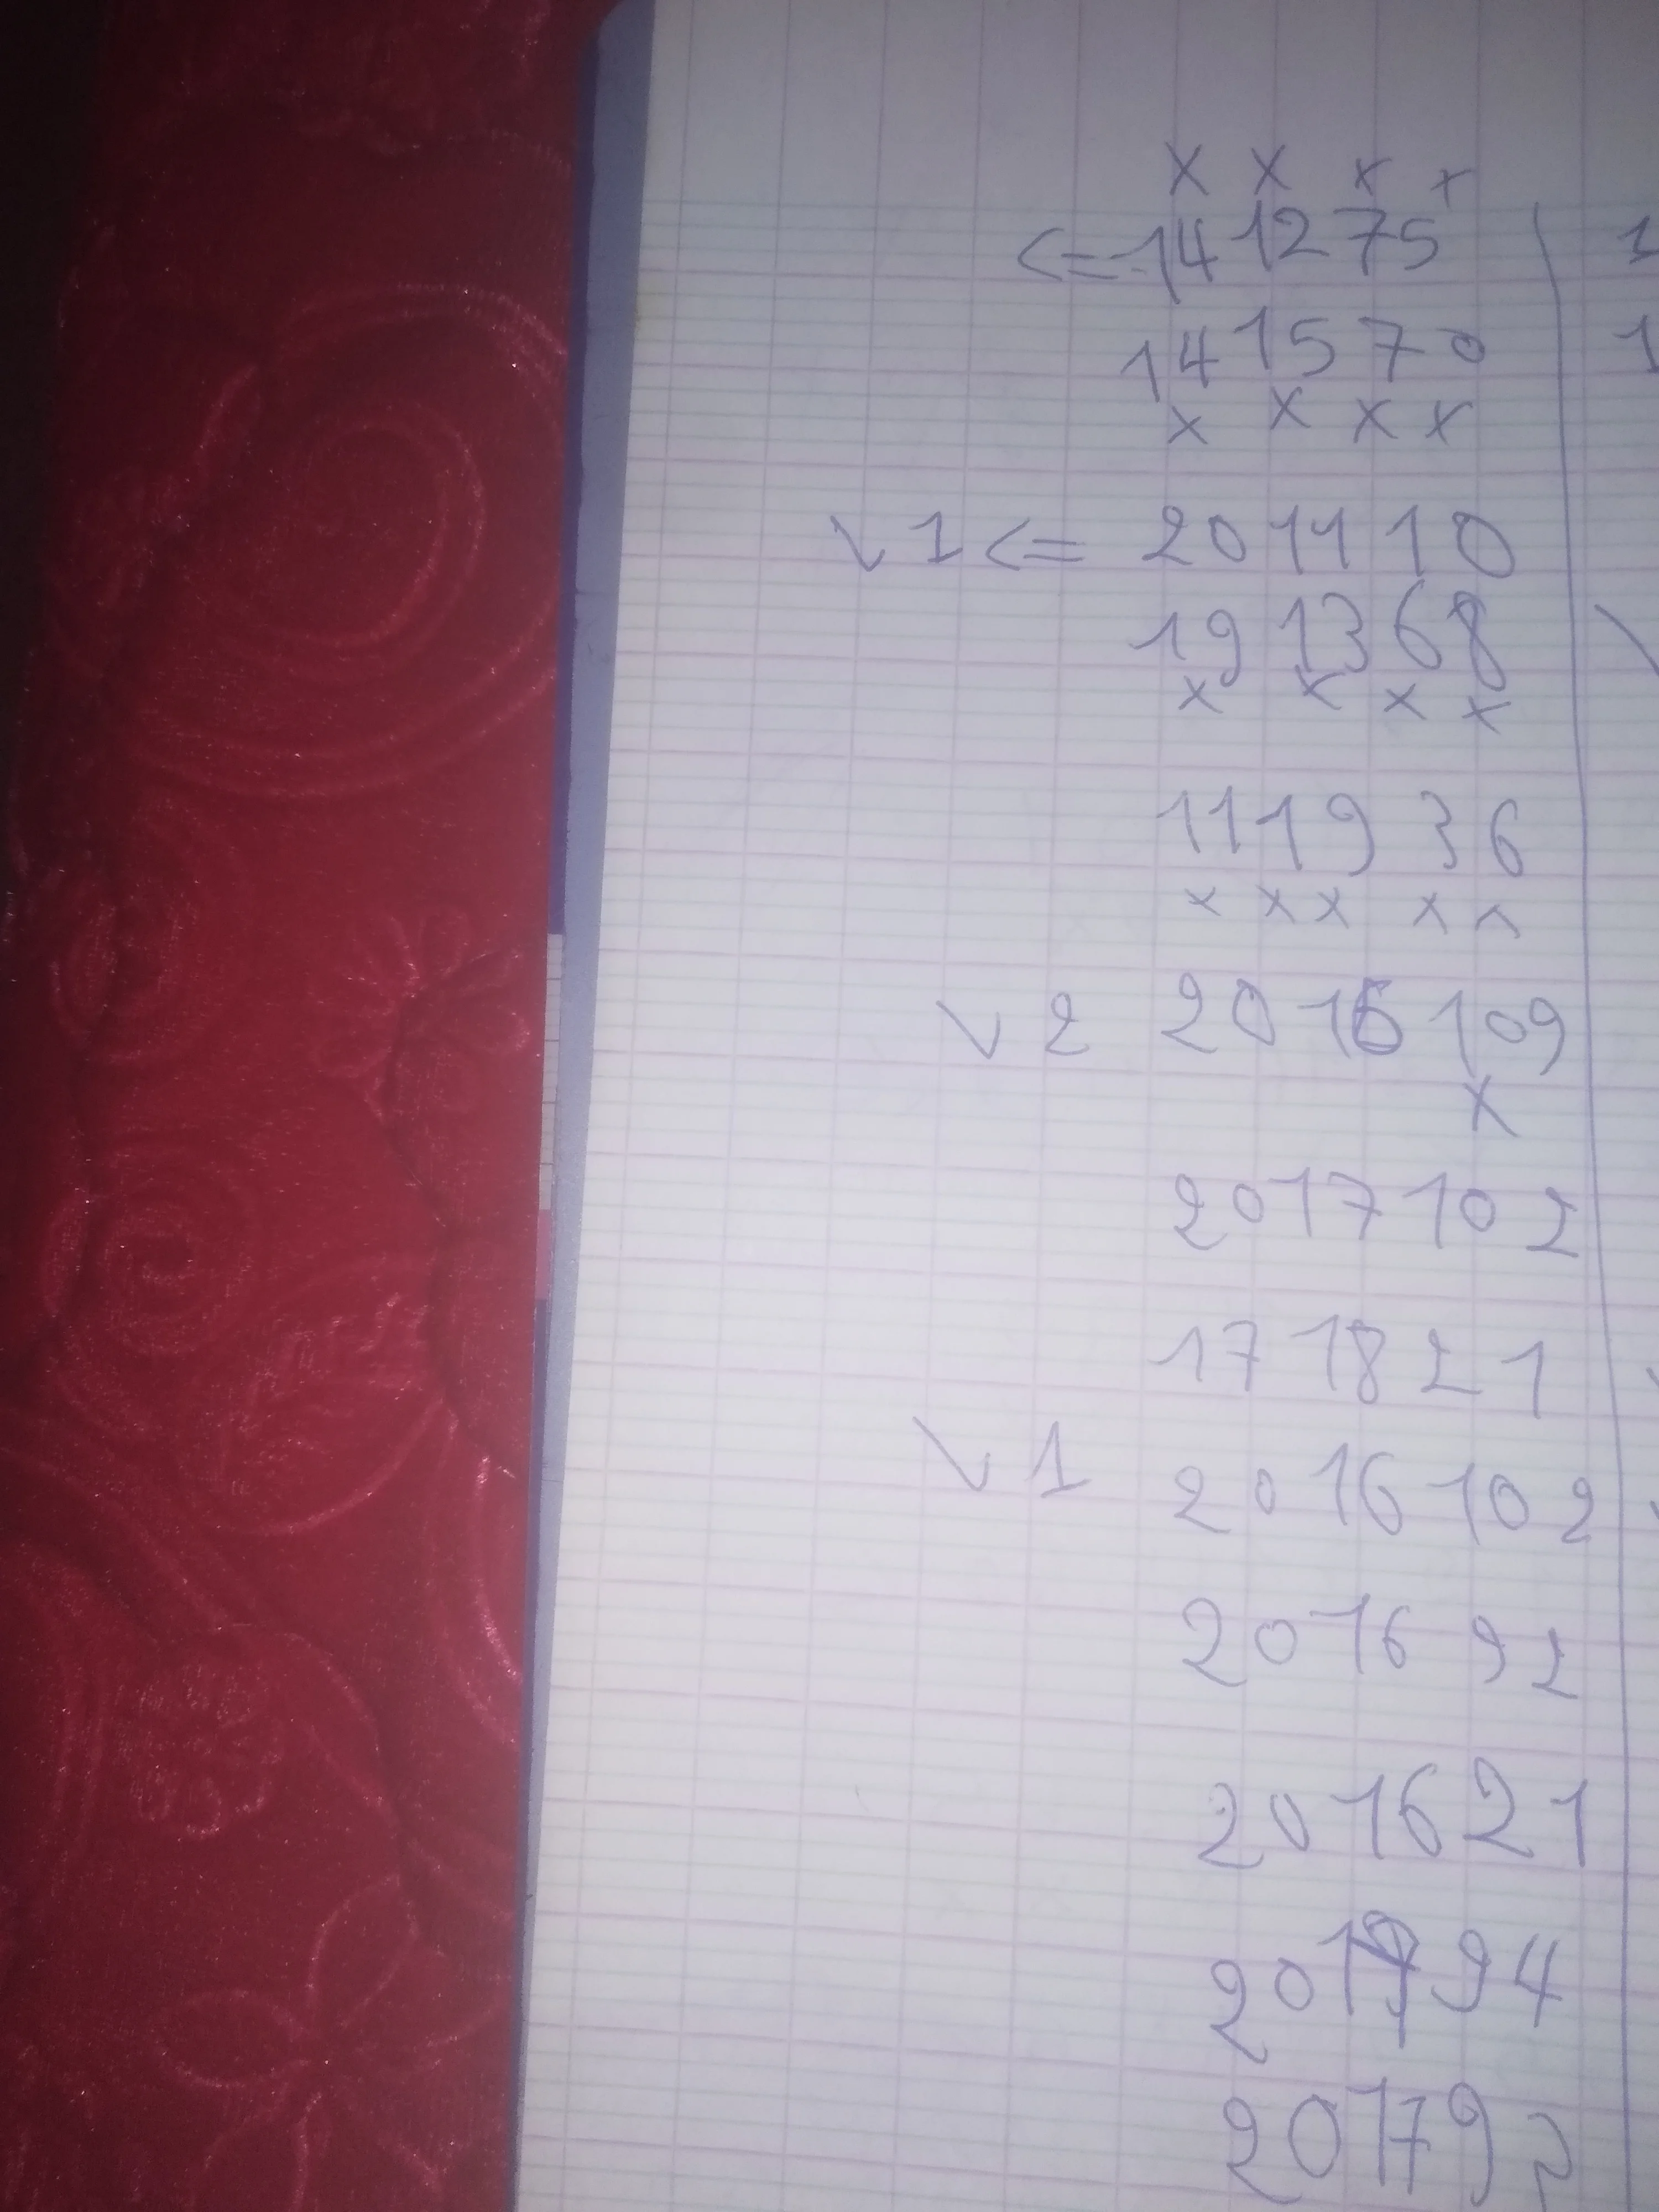 x x x x
<= 14 12 7 5
14 15 7 0
x x x x
v 1 <= 20 11 1 0
19 13 6 8
x x x x
11 19 3 6
x x x x x
v 2 20 16 10 9
x
20 17 10 2
17 18 2 1
v 1 20 16 10 2
20 16 9 2
20 16 2 1
20 9 4
20 17 9 2
1
1